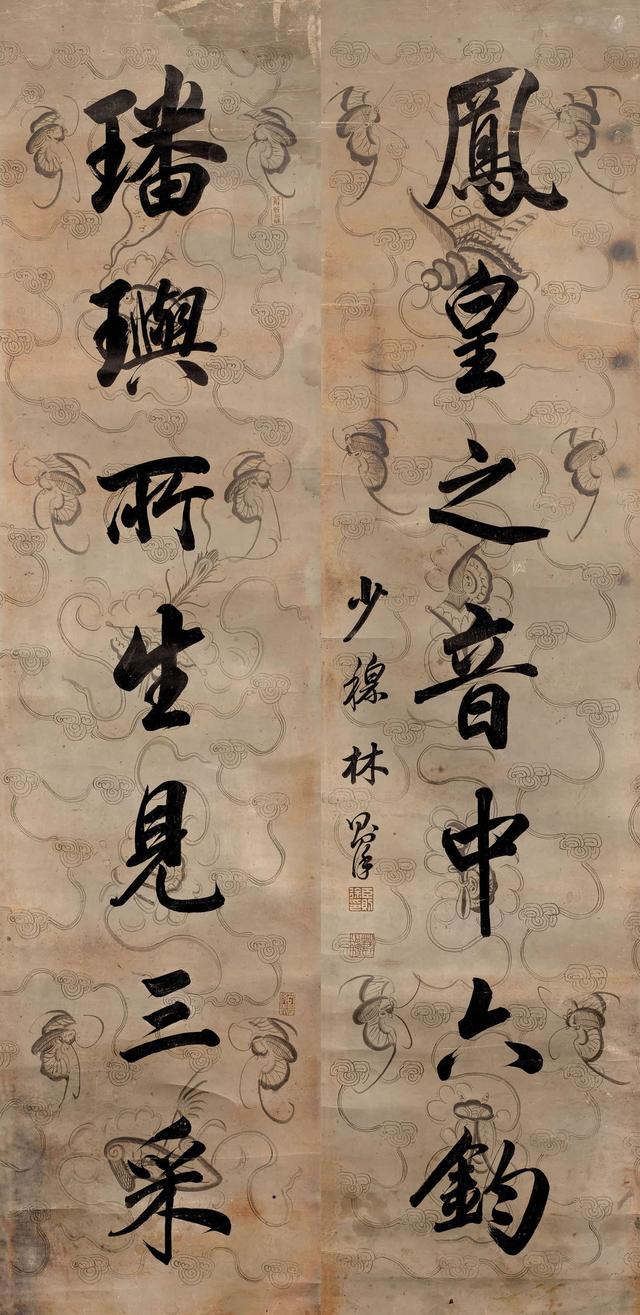 鳳皇之音中六鈞
少穆林則徐
璠璵所生見三采